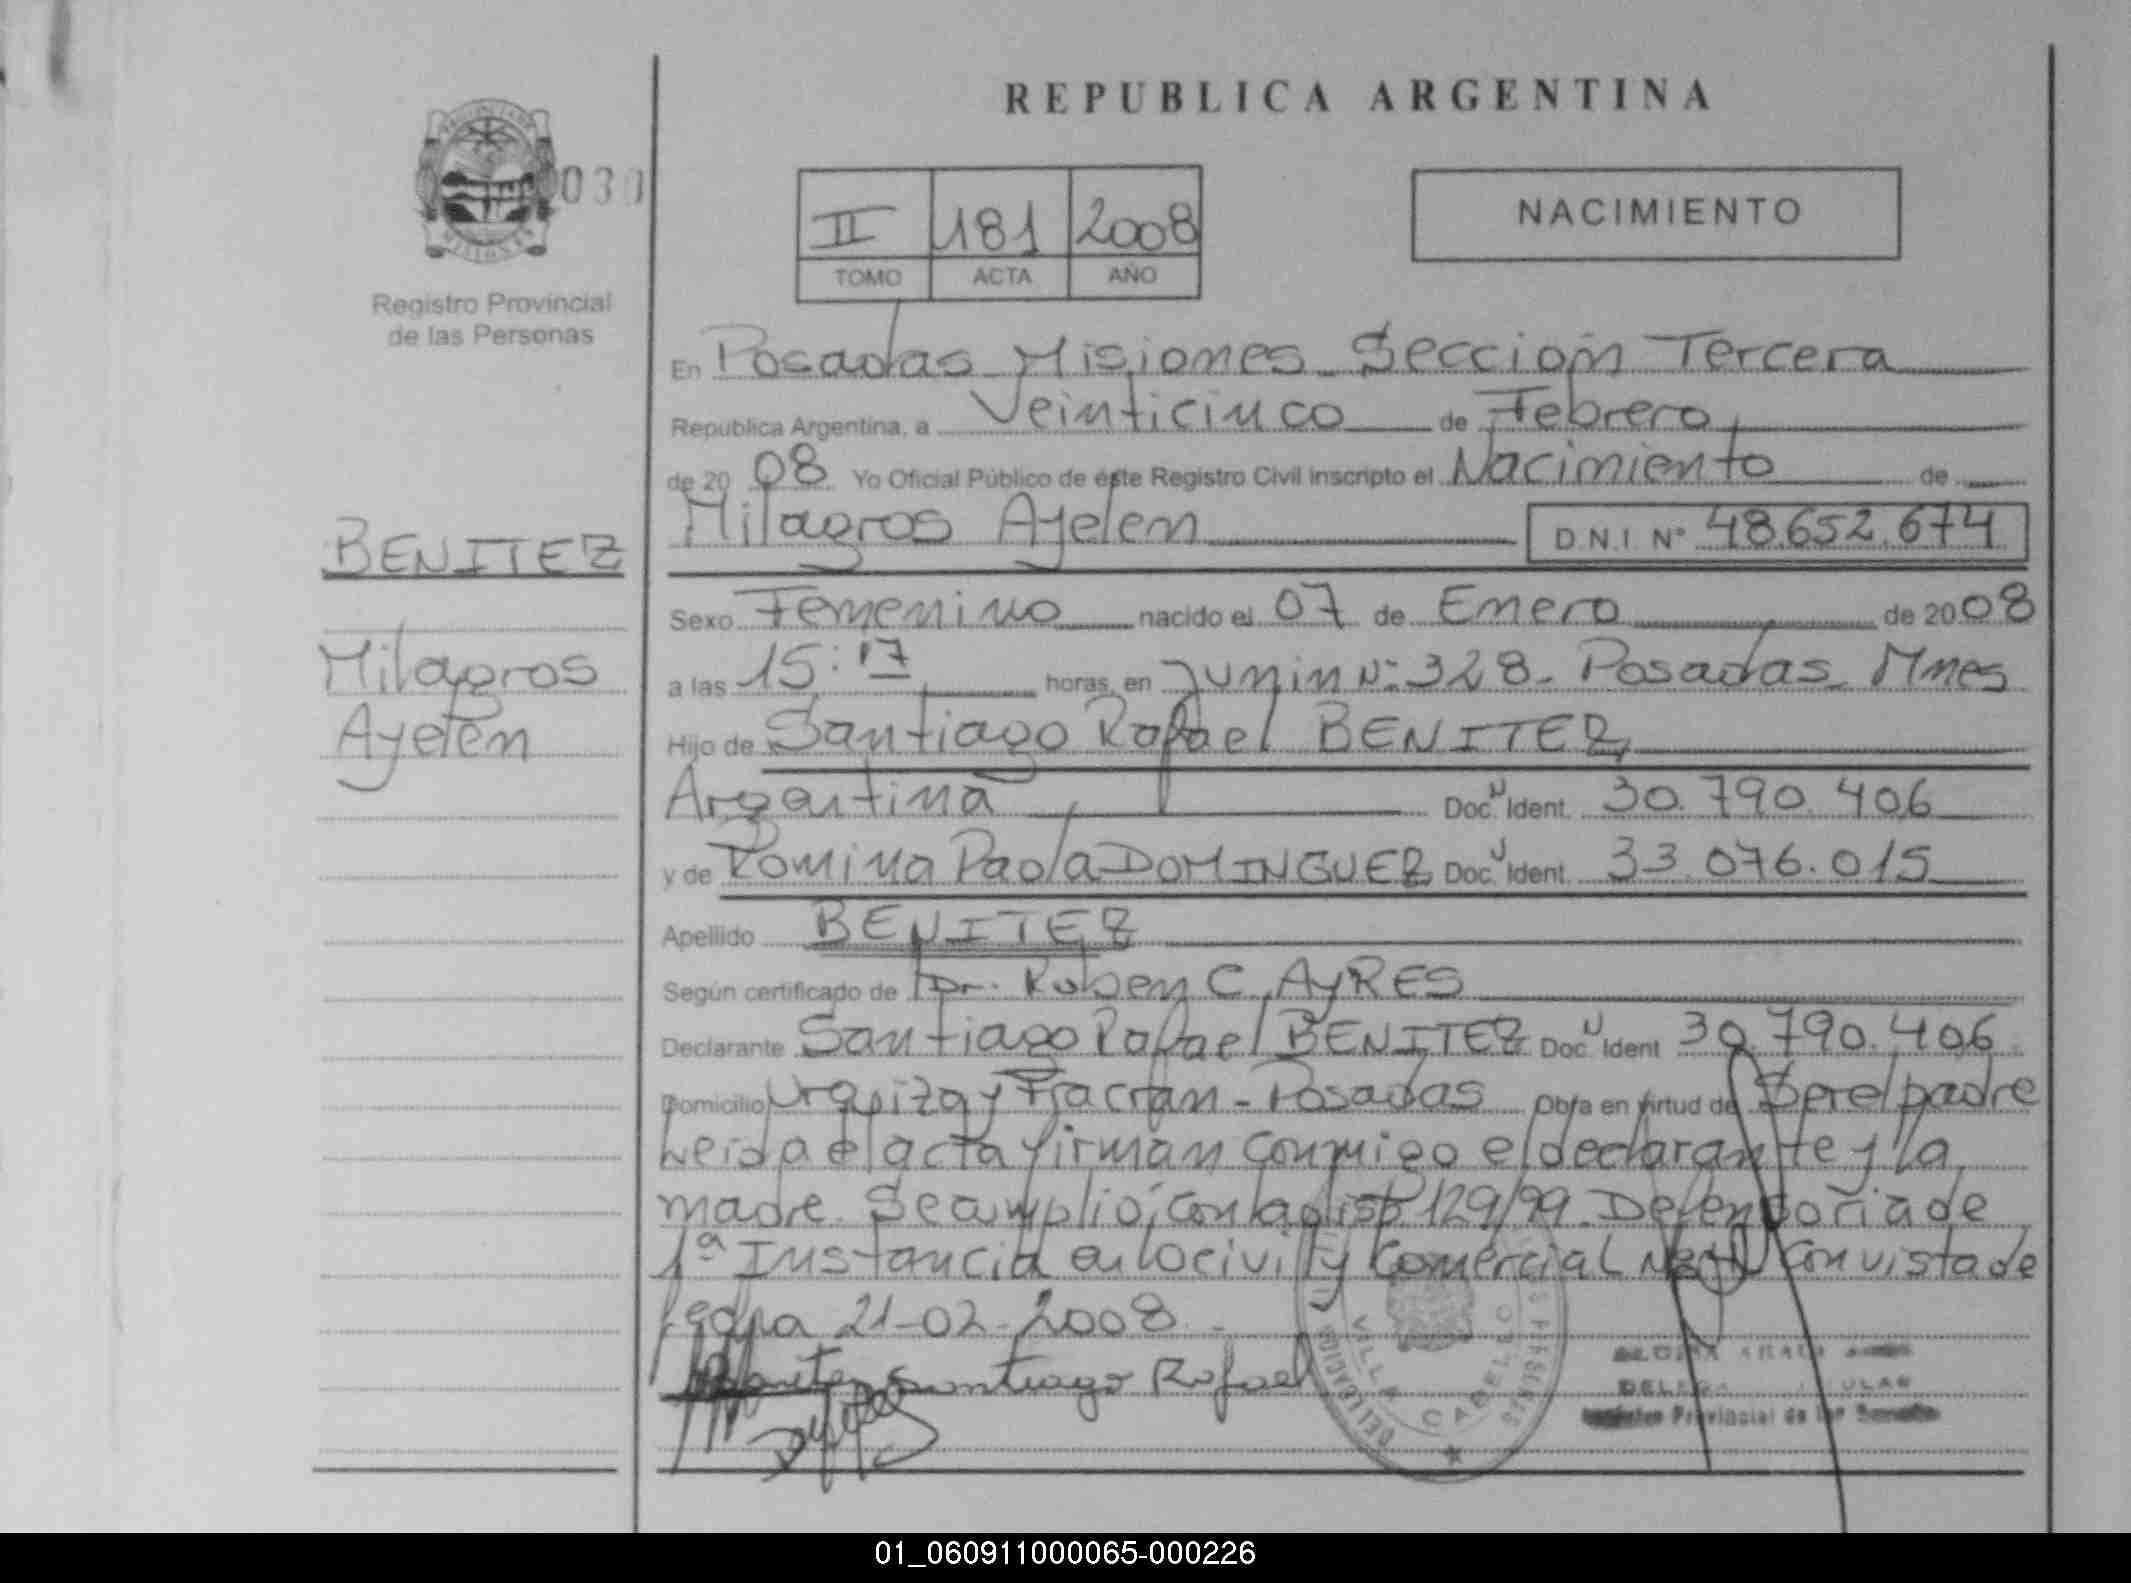 REPUBLICA ARGENTINA
030
II 181 2008
TOMO ACTA AÑO
NACIMIENTO
Registro Provincial
de las Personas
En Posadas Misiones Sección Tercera
Republica Argentina, a Veinticinco de Febrero
de 20 08 Yo Oficial Público de este Registro Civil inscripto el Nacimiento de
Milagros Ayelen D.N.I. Nº 48.652.674
BENITEZ
Milagros
Ayelen
Sexo Femenino nacido el 07 de Enero de 2008
a las 15:17 horas, en Junin Nº 328 - Posadas Mnes
Hijo de Santiago Rafael BENITEZ
Argentina Doc. Ident. 30.790.406
y de Romina Paola DOMINGUEZ Doc. Ident. 33.076.015
Apellido BENITEZ
Según certificado de Dr. Ruben C. AyRES
Declarante Santiago Rafael BENITEZ Doc. Ident 30.790.406
Domicilio Urquiza y Fracran - Posadas Obra en virtud de Ser el padre
Leida el acta firman conmigo el declarante y la
madre. Se cumplió con la disp. 129/99. Defensoria de
1ª Instancia en lo civil y Comercial con vista de
fecha 21-02-2008.
Benitez Santiago Rafael
DELEGACION
VILLA CABELLO
Registro Provincial de las Personas
01_060911000065-000226